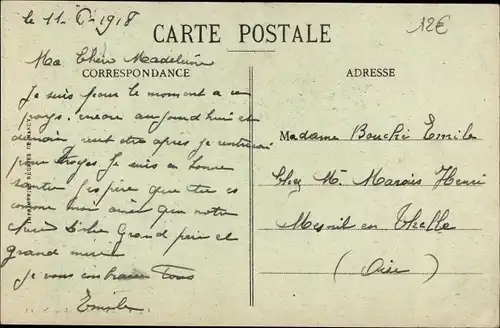 le 11 - 1918
12€
CARTE POSTALE
Ma Chère Madeleine
CORRESPONDANCE
ADRESSE
Je suis pour le moment a ce
pays. encore aujourd'hui et
demain peut etre apres je rentrerai
pour Troyes. Je suis en bonne
santé j'espère que tu es
comme moi ainsi que notre
chère Grand père et
grand mère
je vous embrasse Tous
Emile
Madame Bouché Emile
Chez Mr Marois Henri
Mesnil en Thelle
(Oise)